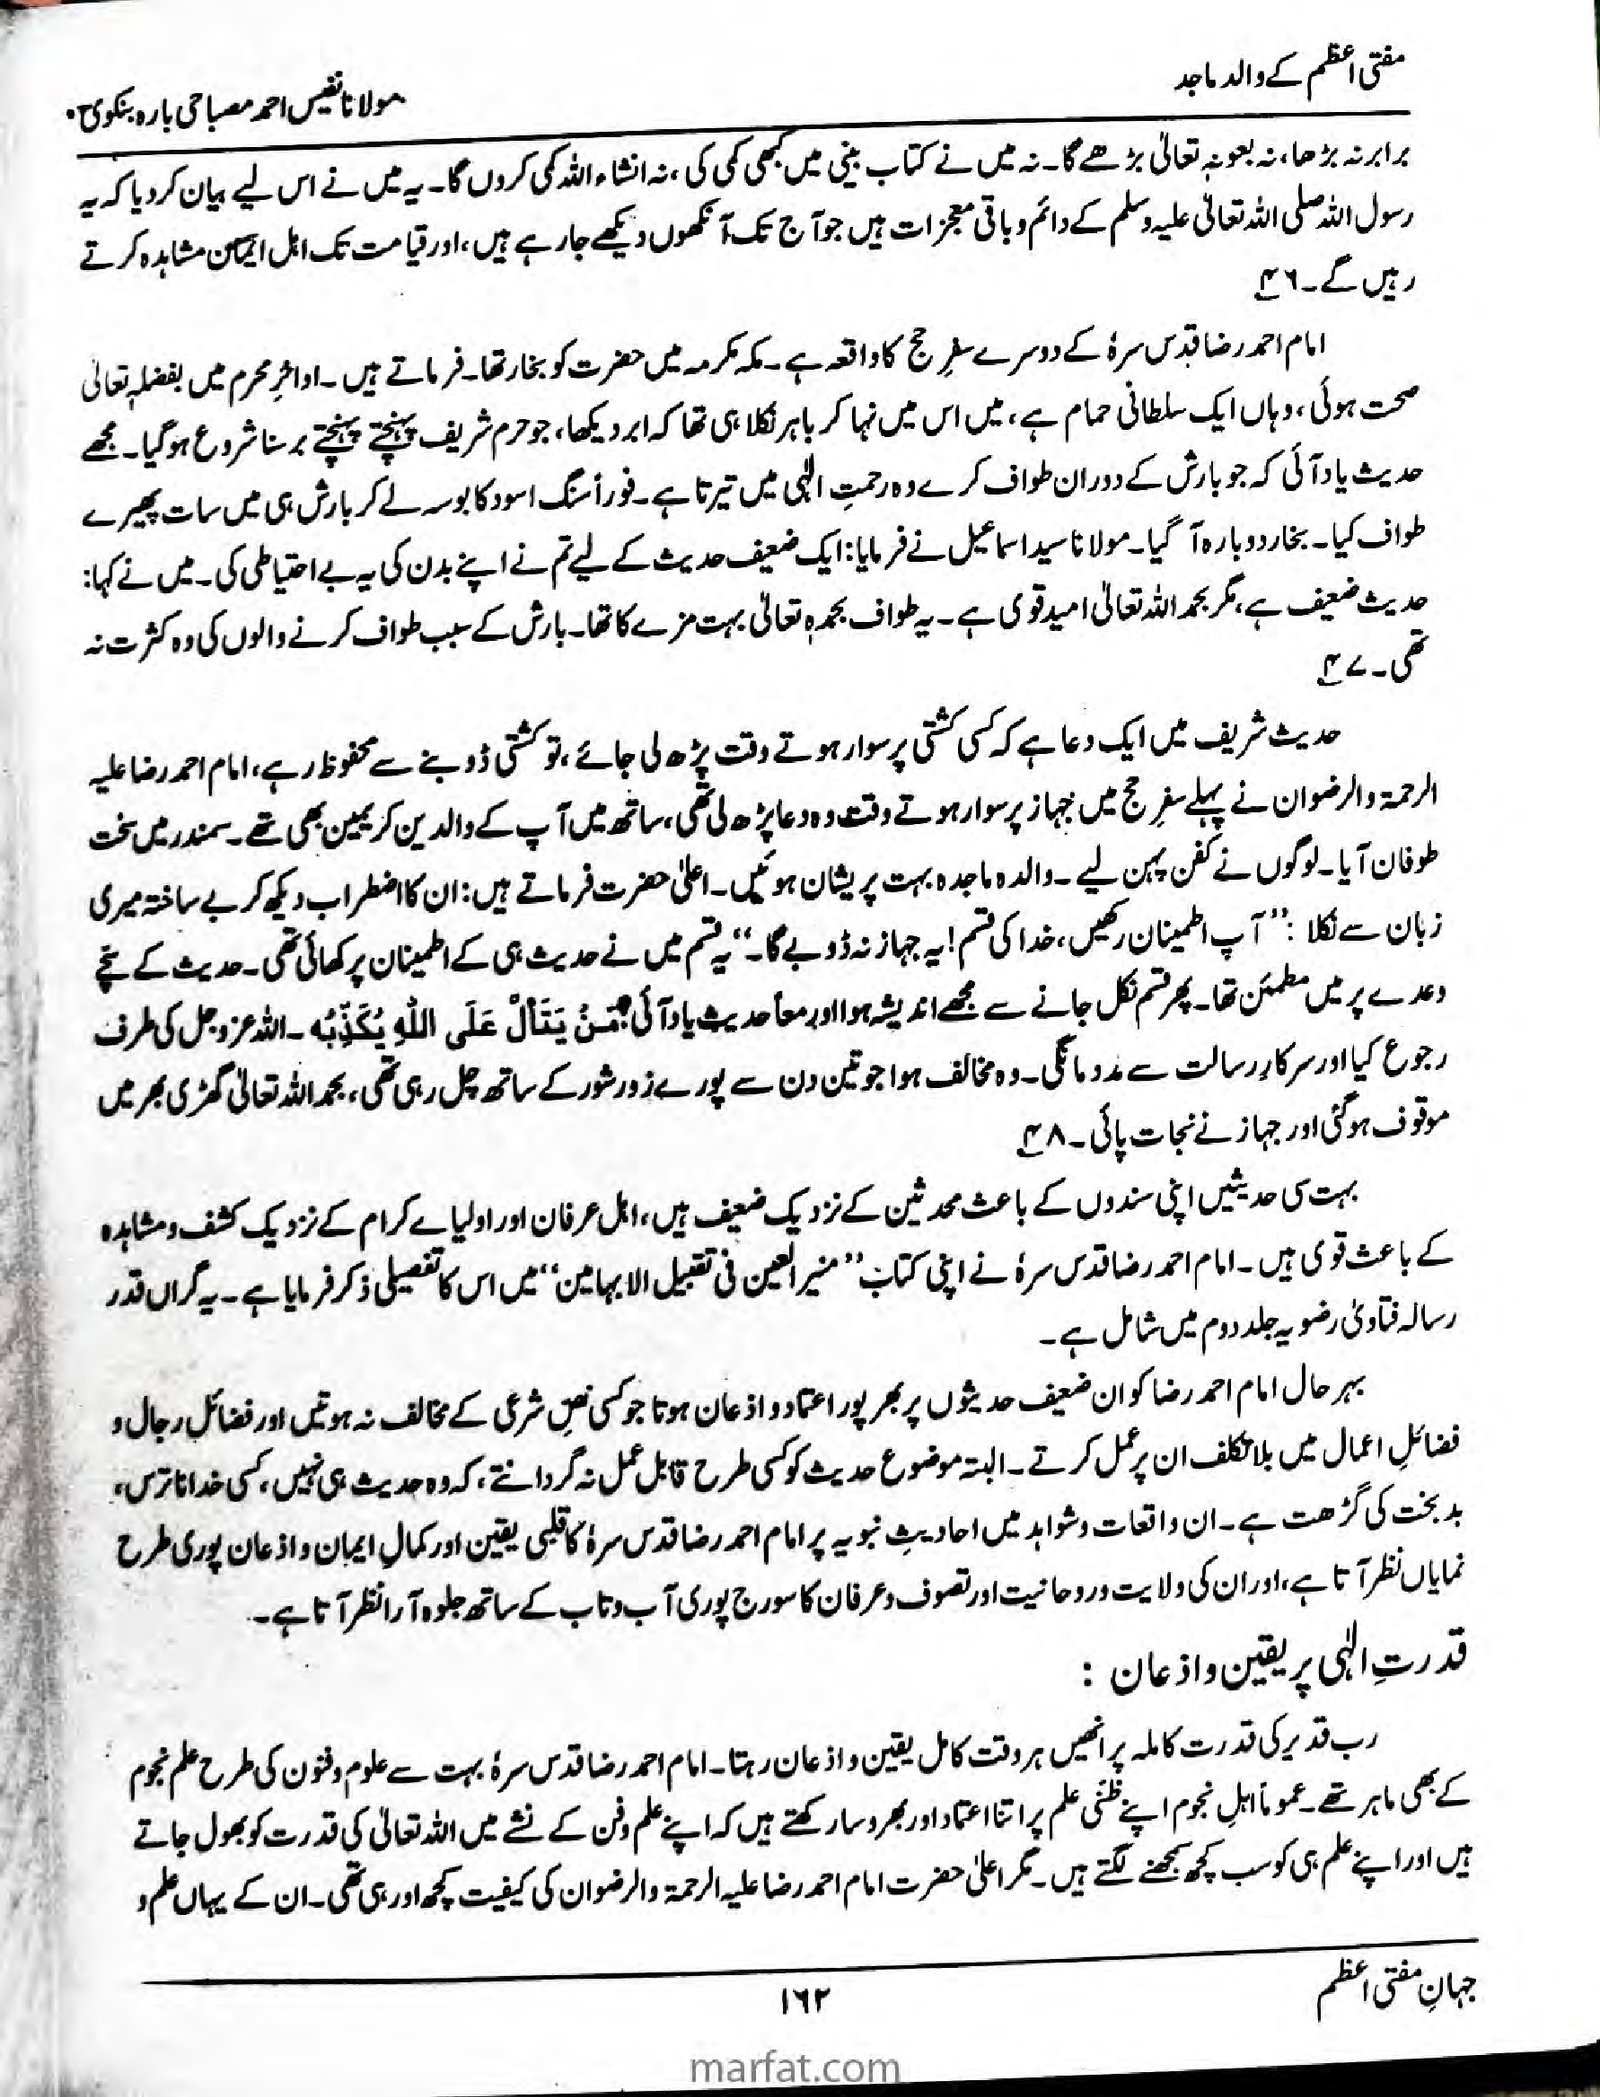 مفتی اعظم کے والد ماجد
مولانا نفیس احمد مصباحی بارہ بنکوی
برابر نہ بڑھا، نہ بعونہٖ تعالیٰ بڑھے گا۔ نہ میں نے کتاب بینی میں کبھی کمی کی، نہ انشاء اللہ کمی کروں گا۔ یہ میں نے اس لیے بیان کردیا کہ یہ
رسول اللہ صلی اللہ تعالیٰ علیہ وسلم کے دائم و باقی معجزات ہیں جو آج تک آنکھوں دیکھے جارہے ہیں، اور قیامت تک اہل ایمان مشاہدہ کرتے
رہیں گے۔ ۴۶
امام احمد رضا قدس سرہٗ کے دوسرے سفرِ حج کا واقعہ ہے۔ مکہ مکرمہ میں حضرت کو بخار تھا۔ فرماتے ہیں۔ اواخرِ محرم میں بفضلہٖ تعالیٰ
صحت ہوئی، وہاں ایک سلطانی حمام ہے، میں اس میں نہا کر باہر نکلا ہی تھا کہ ابر دیکھا، جو حرم شریف پہنچتے پہنچتے برسنا شروع ہوگیا۔ مجھے
حدیث یاد آئی کہ جو بارش کے دوران طواف کرے وہ رحمتِ الٰہی میں تیرتا ہے۔ فوراً سنگ اسود کا بوسہ لے کر بارش ہی میں سات پھیرے
طواف کیا۔ بخار دوبارہ آ گیا۔ مولانا سید اسماعیل نے فرمایا: ایک ضعیف حدیث کے لیے تم نے اپنے بدن کی یہ بے احتیاطی کی۔ میں نے کہا:
حدیث ضعیف ہے، مگر بحمد اللہ تعالیٰ امید قوی ہے۔ یہ طواف بحمدہٖ تعالیٰ بہت مزے کا تھا۔ بارش کے سبب طواف کرنے والوں کی وہ کثرت نہ
تھی۔ ۴۷
حدیث شریف میں ایک دعا ہے کہ کسی کشتی پر سوار ہوتے وقت پڑھ لی جائے، تو کشتی ڈوبنے سے محفوظ رہے، امام احمد رضا علیہ
الرحمۃ والرضوان نے پہلے سفرِ حج میں جہاز پر سوار ہوتے وقت وہ دعا پڑھ لی تھی، ساتھ میں آپ کے والدین کریمین بھی تھے۔ سمندر میں سخت
طوفان آیا۔ لوگوں نے کفن پہن لیے۔ والدہ ماجدہ بہت پریشان ہوئیں۔ اعلیٰ حضرت فرماتے ہیں: ان کا اضطراب دیکھ کر بے ساختہ میری
زبان سے نکلا : ”آپ اطمینان رکھیں، خدا کی قسم! یہ جہاز نہ ڈوبے گا۔“ یہ قسم میں نے حدیث ہی کے اطمینان پر کھائی تھی۔ حدیث کے سچے
وعدے پر میں مطمئن تھا۔ پھر قسم نکل جانے سے مجھے اندیشہ ہوا اور معاً حدیث یاد آئی: مَنْ يَتَأَلَّ عَلَى اللّٰهِ يُكَذِّبُه ۔ اللہ عزوجل کی طرف
رجوع کیا اور سرکارِ رسالت سے مدد مانگی۔ وہ مخالف ہوا جو تین دن سے پورے زور شور کے ساتھ چل رہی تھی، بحمد اللہ تعالیٰ گھڑی بھر میں
موقوف ہوگئی اور جہاز نے نجات پائی۔ ۴۸
بہت سی حدیثیں اپنی سندوں کے باعث محدثین کے نزدیک ضعیف ہیں، اہل عرفان اور اولیاے کرام کے نزدیک کشف و مشاہدہ
کے باعث قوی ہیں۔ امام احمد رضا قدس سرہٗ نے اپنی کتاب ”منیر العین فی تقبیل الابہامین“ میں اس کا تفصیلی ذکر فرمایا ہے۔ یہ گراں قدر
رسالہ فتاویٰ رضویہ جلد دوم میں شامل ہے۔
بہر حال امام احمد رضا کو ان ضعیف حدیثوں پر بھرپور اعتماد و اذعان ہوتا جو کسی نصِ شرعی کے مخالف نہ ہوتیں اور فضائل رجال و
فضائلِ اعمال میں بلا تکلف ان پر عمل کرتے۔ البتہ موضوع حدیث کو کسی طرح قابل عمل نہ گردانتے، کہ وہ حدیث ہی نہیں، کسی خدا ناترس،
بدبخت کی گڑھت ہے۔ ان واقعات و شواہد میں احادیثِ نبویہ پر امام احمد رضا قدس سرہٗ کا قلبی یقین اور کمالِ ایمان و اذعان پوری طرح
نمایاں نظر آتا ہے، اور ان کی ولایت و روحانیت اور تصوف و عرفان کا سورج پوری آب و تاب کے ساتھ جلوہ آرا نظر آتا ہے۔
قدرتِ الٰہی پر یقین و اذعان :
رب قدیر کی قدرت کاملہ پر انھیں ہر وقت کامل یقین و اذعان رہتا۔ امام احمد رضا قدس سرہٗ بہت سے علوم و فنون کی طرح علم نجوم
کے بھی ماہر تھے۔ عموماً اہلِ نجوم اپنے ظنّی علم پر اتنا اعتماد اور بھروسا رکھتے ہیں کہ اپنے علم و فن کے نشے میں اللہ تعالیٰ کی قدرت کو بھول جاتے
ہیں اور اپنے علم ہی کو سب کچھ سمجھنے لگتے ہیں۔ مگر اعلیٰ حضرت امام احمد رضا علیہ الرحمۃ والرضوان کی کیفیت کچھ اور ہی تھی۔ ان کے یہاں علم و
جہانِ مفتی اعظم
۱۶۲
marfat.com